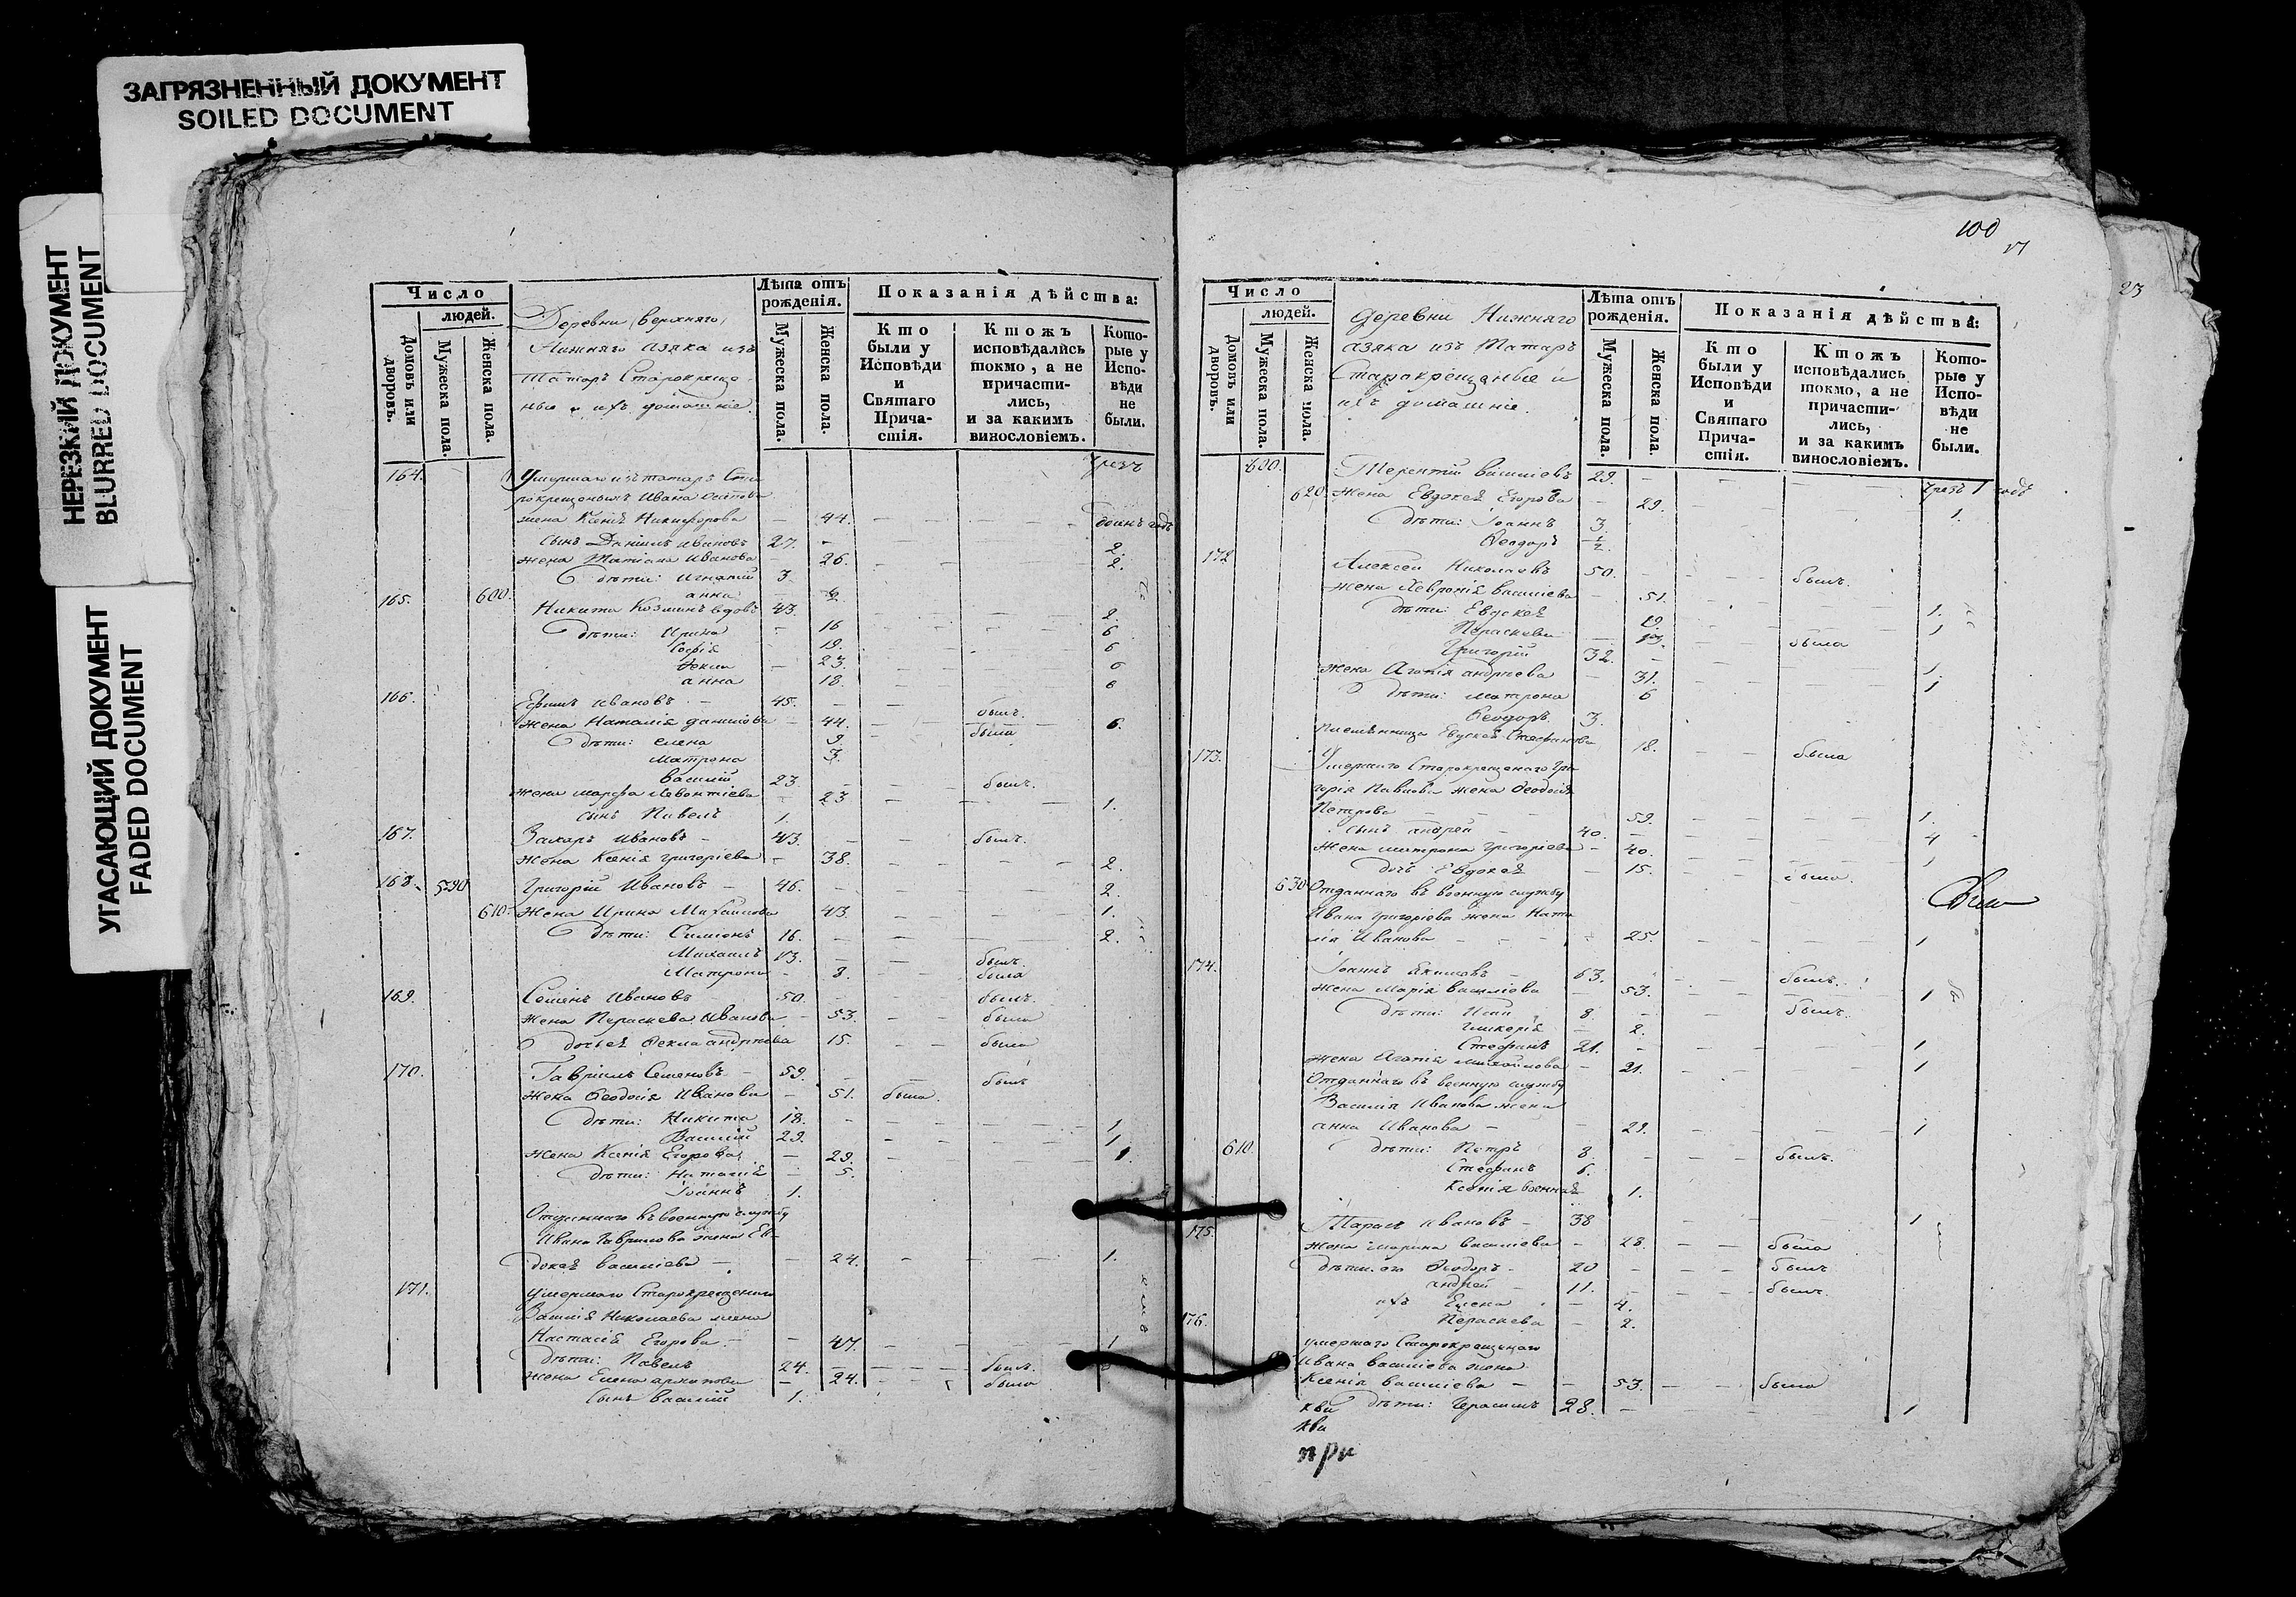 ЗАГРЯЗНЕННЫЙ ДОКУМЕНТ
SOILED DOCUMENT
НЕРЕЗКИЙ ДОКУМЕНТ
BLURRED DOCUMENT
УГАСАЮЩИЙ ДОКУМЕНТ
FADED DOCUMENT
Число
людей.
Домовъ или дворовъ.
Мужеска пола.
Женска пола.
Деревни Верхняго,
Нижняго Азяка изъ
Татаръ Старокреще-
ные и ихъ домашніе.
Лѣта отъ рожденія.
Мужеска пола.
Женска пола.
Показанія дѣйства:
Кто были у Исповѣди и Святаго Прича-стія.
Ктожъ исповѣдались токмо, а не причасти-лись, и за какимъ винословіемъ.
Кото-рые у Испо-вѣди не были.
164. Умершаго изъ татаръ Ста
рокрещеныхъ Ивана Осипова
жена Ксенія Никифорова — 44.
сынъ Даніилъ Ивановъ 27. — 2.
жена Татіана Иванова 26. 2.
дѣти: Игнатій 3
600. анна
165. Никита Козминъ вдовъ 43. 2.
дѣти: Ирина — 16 6
Софія 19. 6
Фекла — 23. 6
анна 18. 6
166. Ефимъ Ивановъ 45. былъ.
жена Наталія Данилова — 44. была 6.
дѣти: елена 9
матрона 3.
василій 23 былъ.
жена марфа Левонтіева 23 1.
сынъ Павелъ 1.
167. Захаръ Ивановъ 43. былъ.
жена Ксенія григоріева 38. 2.
168. 590 Григорій Ивановъ 46. 2.
610. жена Ирина Михаилова 43. 1.
дѣти: Симіонъ 16. 2.
Михаилъ 13. былъ.
Матрона 8. была
169. Семенъ Ивановъ 50. былъ.
жена Параскева Иванова — 53. была
дочь ея Фекла андреева 15. была
170. Гавріилъ Семеновъ 59. былъ
жена Феодосія Иванова — 51. была.
дѣти: Никита 18. 1
Василій 29. 1
жена Ксенія Егорова — 29. 1.
дѣти: Наталія — 5.
Іоаннъ 1.
Отданнаго въ военную службу
Ивана Гаврилова жена Ев-
докея василіева — 24. 1.
171. умершаго Старокрещенаго
Василія Николаева жена
Настасія Егорова — 47. 1
дѣти: Павелъ 24. былъ.
жена Елена архипова — 24. была
сынъ василій 1.
100
17
23
Число
людей.
Домовъ или дворовъ.
Мужеска пола.
Женска пола.
Деревни Нижняго
Азяка изъ Татаръ
Старокрещеные и
ихъ домашніе.
Лѣта отъ рожденія.
Мужеска пола.
Женска пола.
Показанія дѣйства:
Кто были у Исповѣди и Святаго Прича-стія.
Ктожъ исповѣдались токмо, а не причасти-лись, и за какимъ винословіемъ.
Кото-рые у Испо-вѣди не были.
600. Терентій василіевъ 29. чрезъ 1 годъ
620. жена Евдокея Егорова — 29. 1.
дѣти: Іоаннъ 3
Феодоръ 1/2.
172 Алексей Николаевъ 50. былъ.
жена Февронія василіева — 51. 1.
дѣти: Евдокея 19. 1
Параскева была
Григорій 32. 1.
жена Агафія андреева — 31. 1
дѣти: матрона 6
Феодоръ 3.
Племянница Евдокея Стефанова 18. была
173. Умершаго Старокрещенаго Гри
горія Павлова жена Феодосія
Петрова 59. 1.
сынъ андрей 40. 4
жена матрона григоріева — 40. 1
дочь Евдокея — 15. была.
630 Отданнаго въ военную службу
Ивана Григоріева жена Ната
лія Иванова 25. 1
174. Іоаннъ Екимовъ 63. былъ.
жена Марія василіева — 53. 1
дѣти: 8. былъ.
Гликерія — 2.
Стефанъ 21. 1
жена Агафія Михаилова — 21. 1
Отданнаго въ военную службу
Василія Иванова жена
анна Иванова — 29. 1
610. дѣти: Петръ 8. былъ.
Стефанъ 6.
Ксенія 1.
175. Тарасъ Ивановъ 38 1
жена марина василіева — 28. была
дѣти его Феодоръ 20 былъ
андрей 11. былъ.
ихъ Елена — 4.
Параскева — 2.
176. умершаго Старокрещенаго
Ивана василіева жена
Ксенія василіева — 53. была
дѣти: Герасимъ 28. 1
кви
кви
при